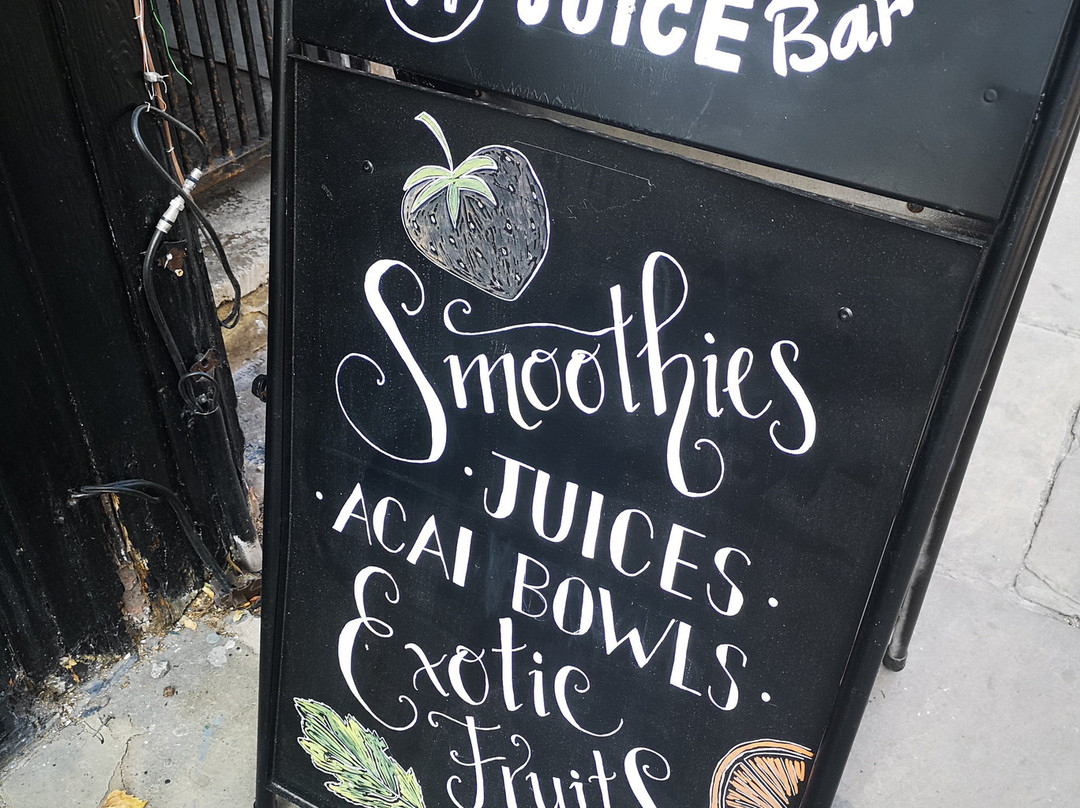 JUICE Bar
Smoothies
· JUICES ·
· ACAI BOWLS ·
Exotic
Fruits